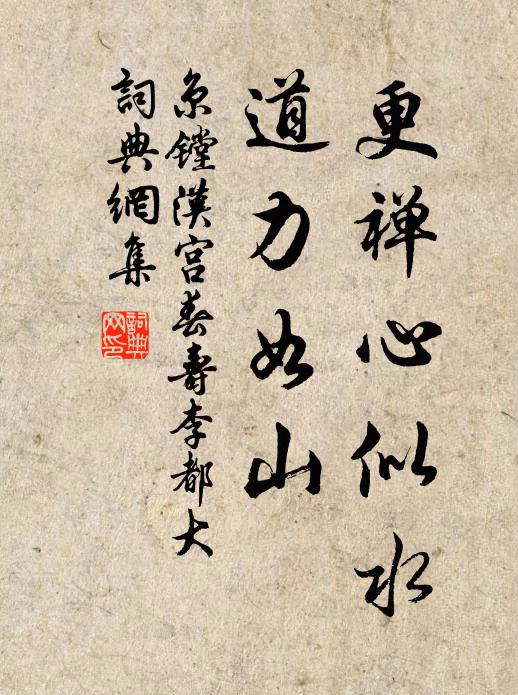 更禅心似水
道力如山
京镗漢宫春壽李都大
詞典網集
詞典網印